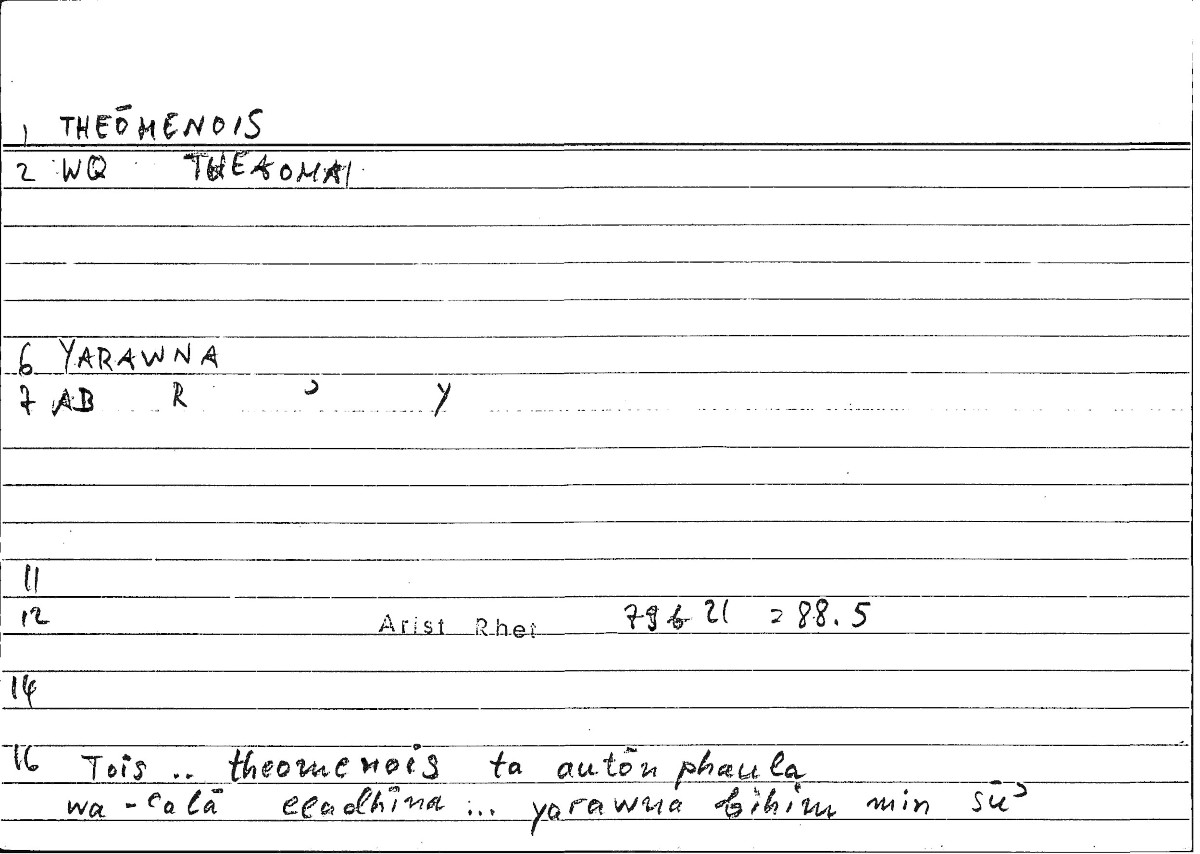 1 THEŌMENOIS
2 WQ THEAOMAI
6 YARAWNA
7 AB R ʾ Y
11
12 Arist Rhet 79b 21 = 88.5
14
16 Tois .. theomenois ta autōn phaula
wa-ʿalā lladhīna ... yarawna bihim min sūʾ